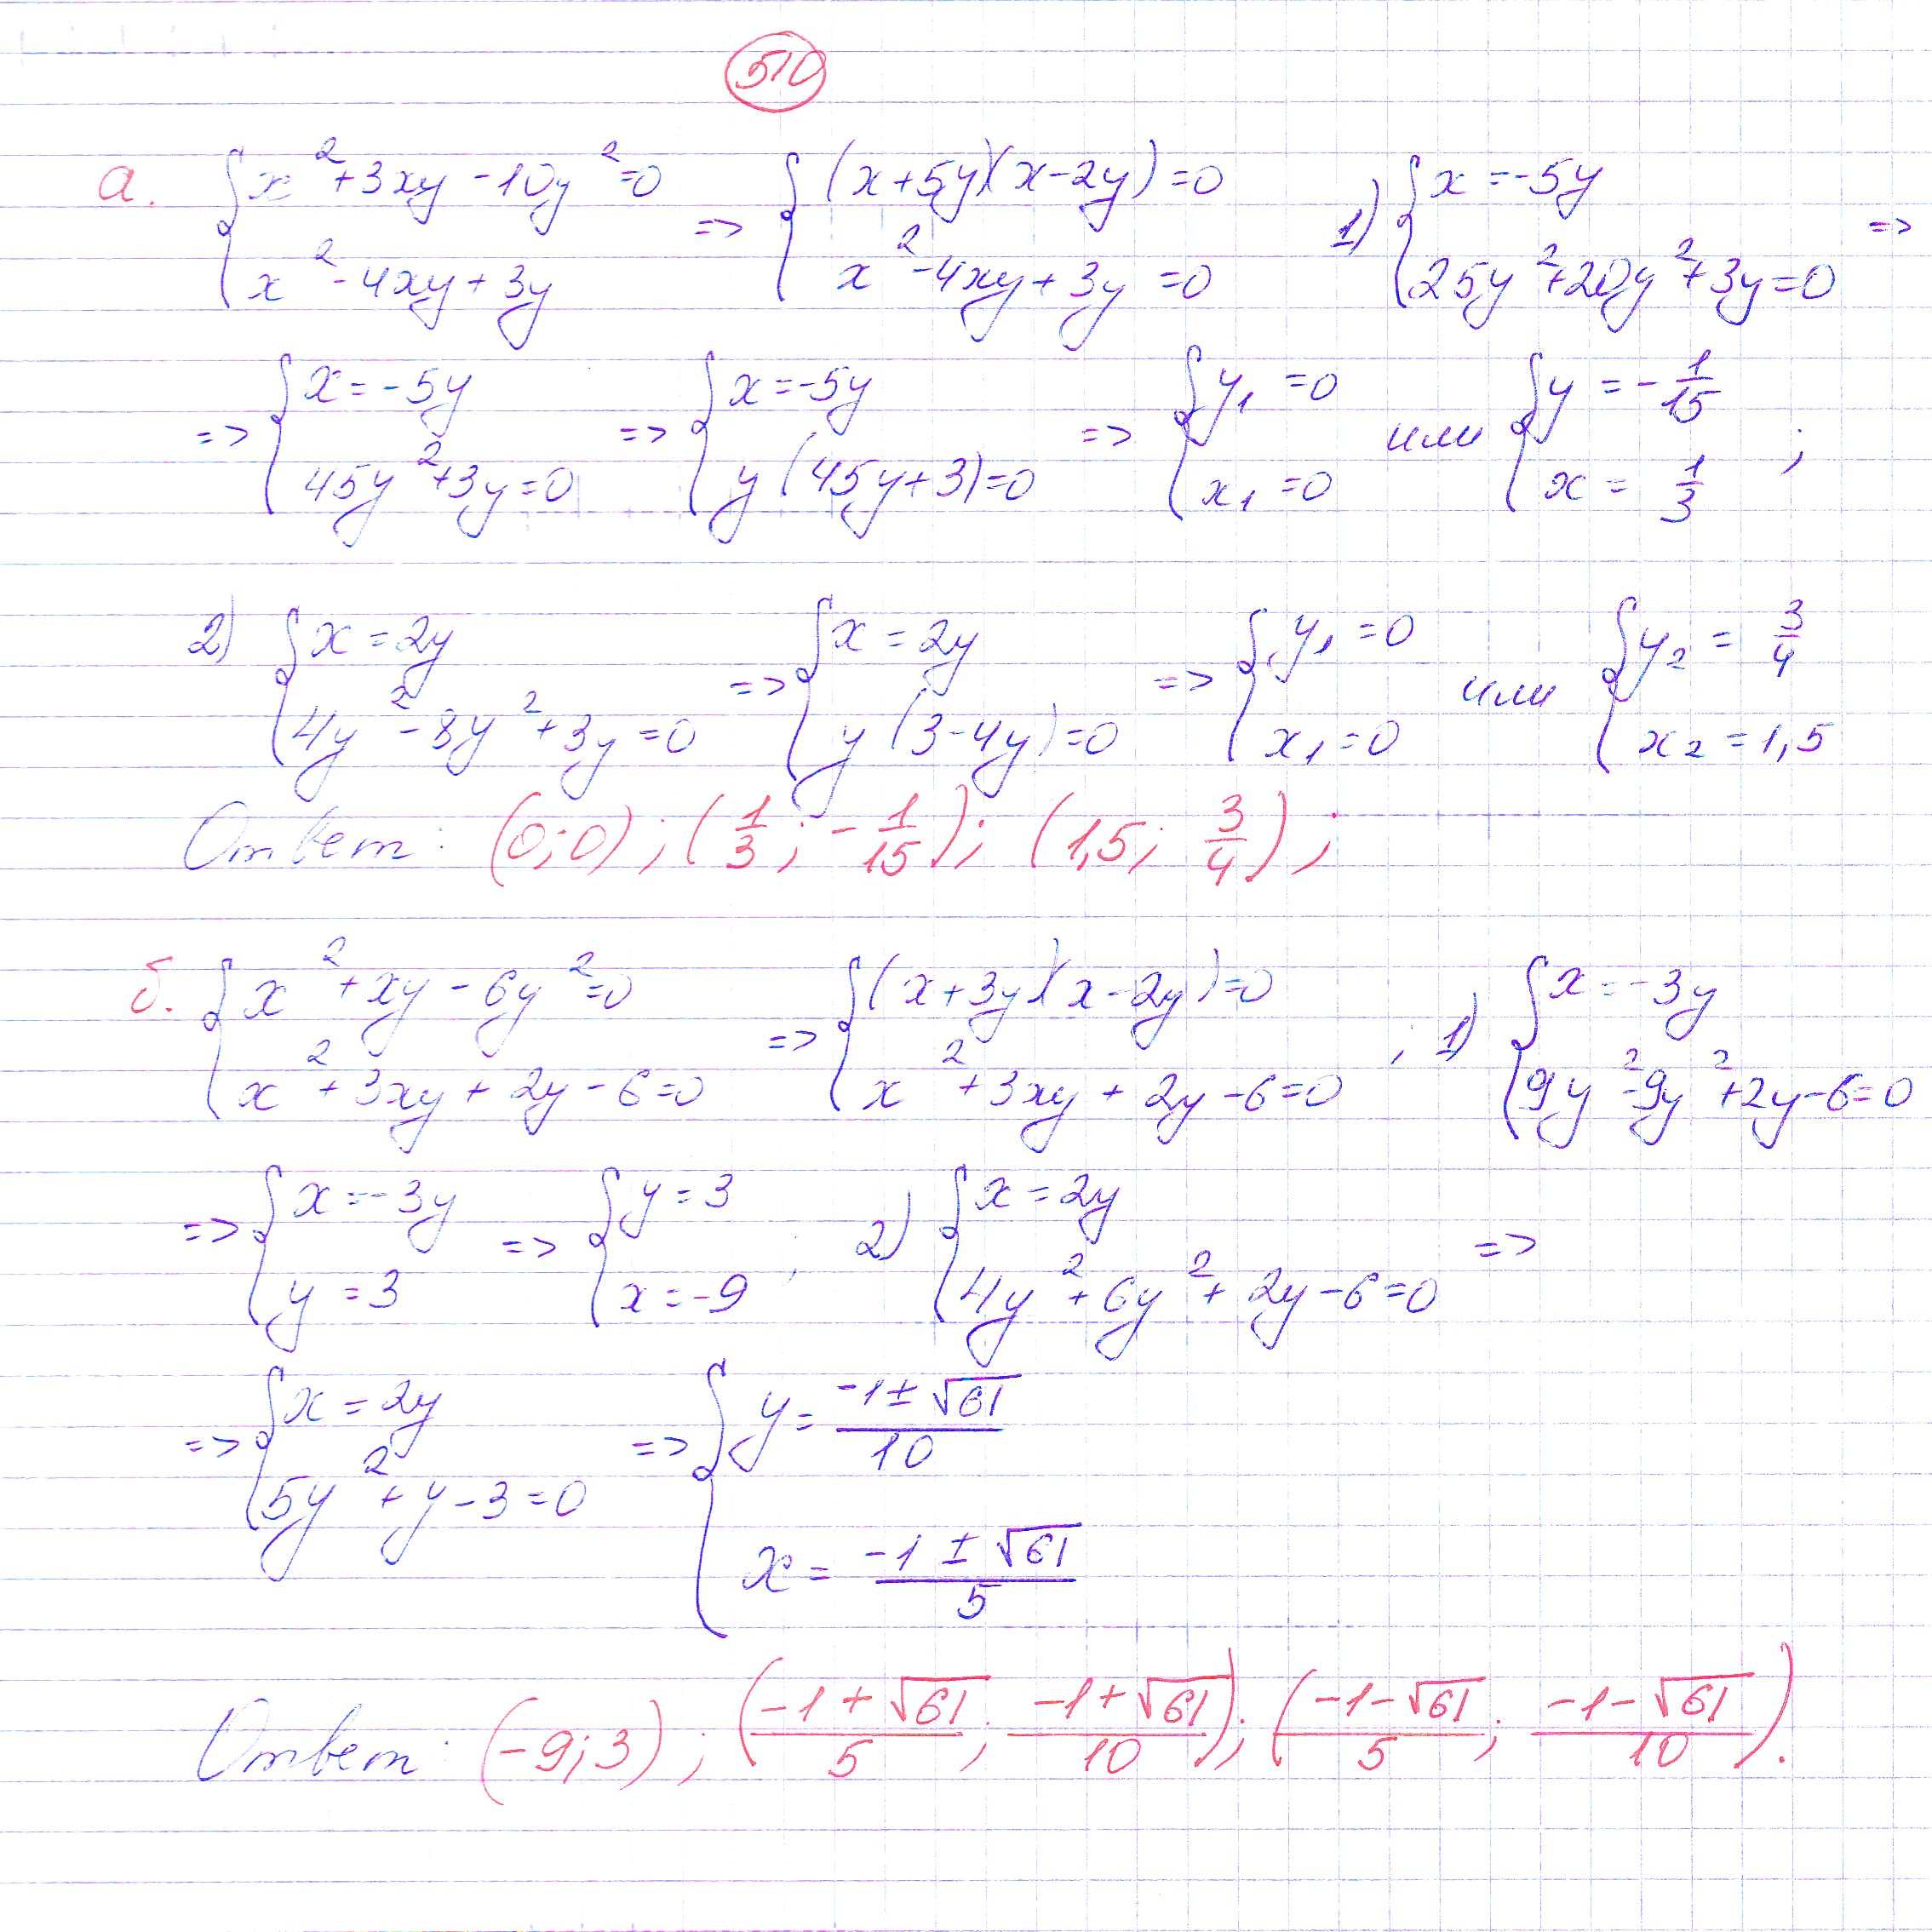 510
а. { x² + 3xy - 10y² = 0 ; x² - 4xy + 3y => { (x + 5y)(x - 2y) = 0 ; x² - 4xy + 3y = 0 1) { x = -5y ; 25y² + 20y² + 3y = 0 =>
=> { x = -5y ; 45y² + 3y = 0 => { x = -5y ; y(45y + 3) = 0 => { y₁ = 0 ; x₁ = 0 или { y = -1/15 ; x = 1/3 ;
2) { x = 2y ; 4y² - 8y² + 3y = 0 => { x = 2y ; y(3 - 4y) = 0 => { y₁ = 0 ; x₁ = 0 или { y₂ = 3/4 ; x₂ = 1,5
Ответ: (0; 0); (1/3; -1/15); (1,5; 3/4);
б. { x² + xy - 6y² = 0 ; x² + 3xy + 2y - 6 = 0 => { (x + 3y)(x - 2y) = 0 ; x² + 3xy + 2y - 6 = 0 ; 1) { x = -3y ; 9y² - 9y² + 2y - 6 = 0
=> { x = -3y ; y = 3 => { y = 3 ; x = -9 ; 2) { x = 2y ; 4y² + 6y² + 2y - 6 = 0 =>
=> { x = 2y ; 5y² + y - 3 = 0 => { y = (-1 ± √61)/10 ; x = (-1 ± √61)/5
Ответ: (-9; 3); ((-1 + √61)/5; (-1 + √61)/10); ((-1 - √61)/5; (-1 - √61)/10).